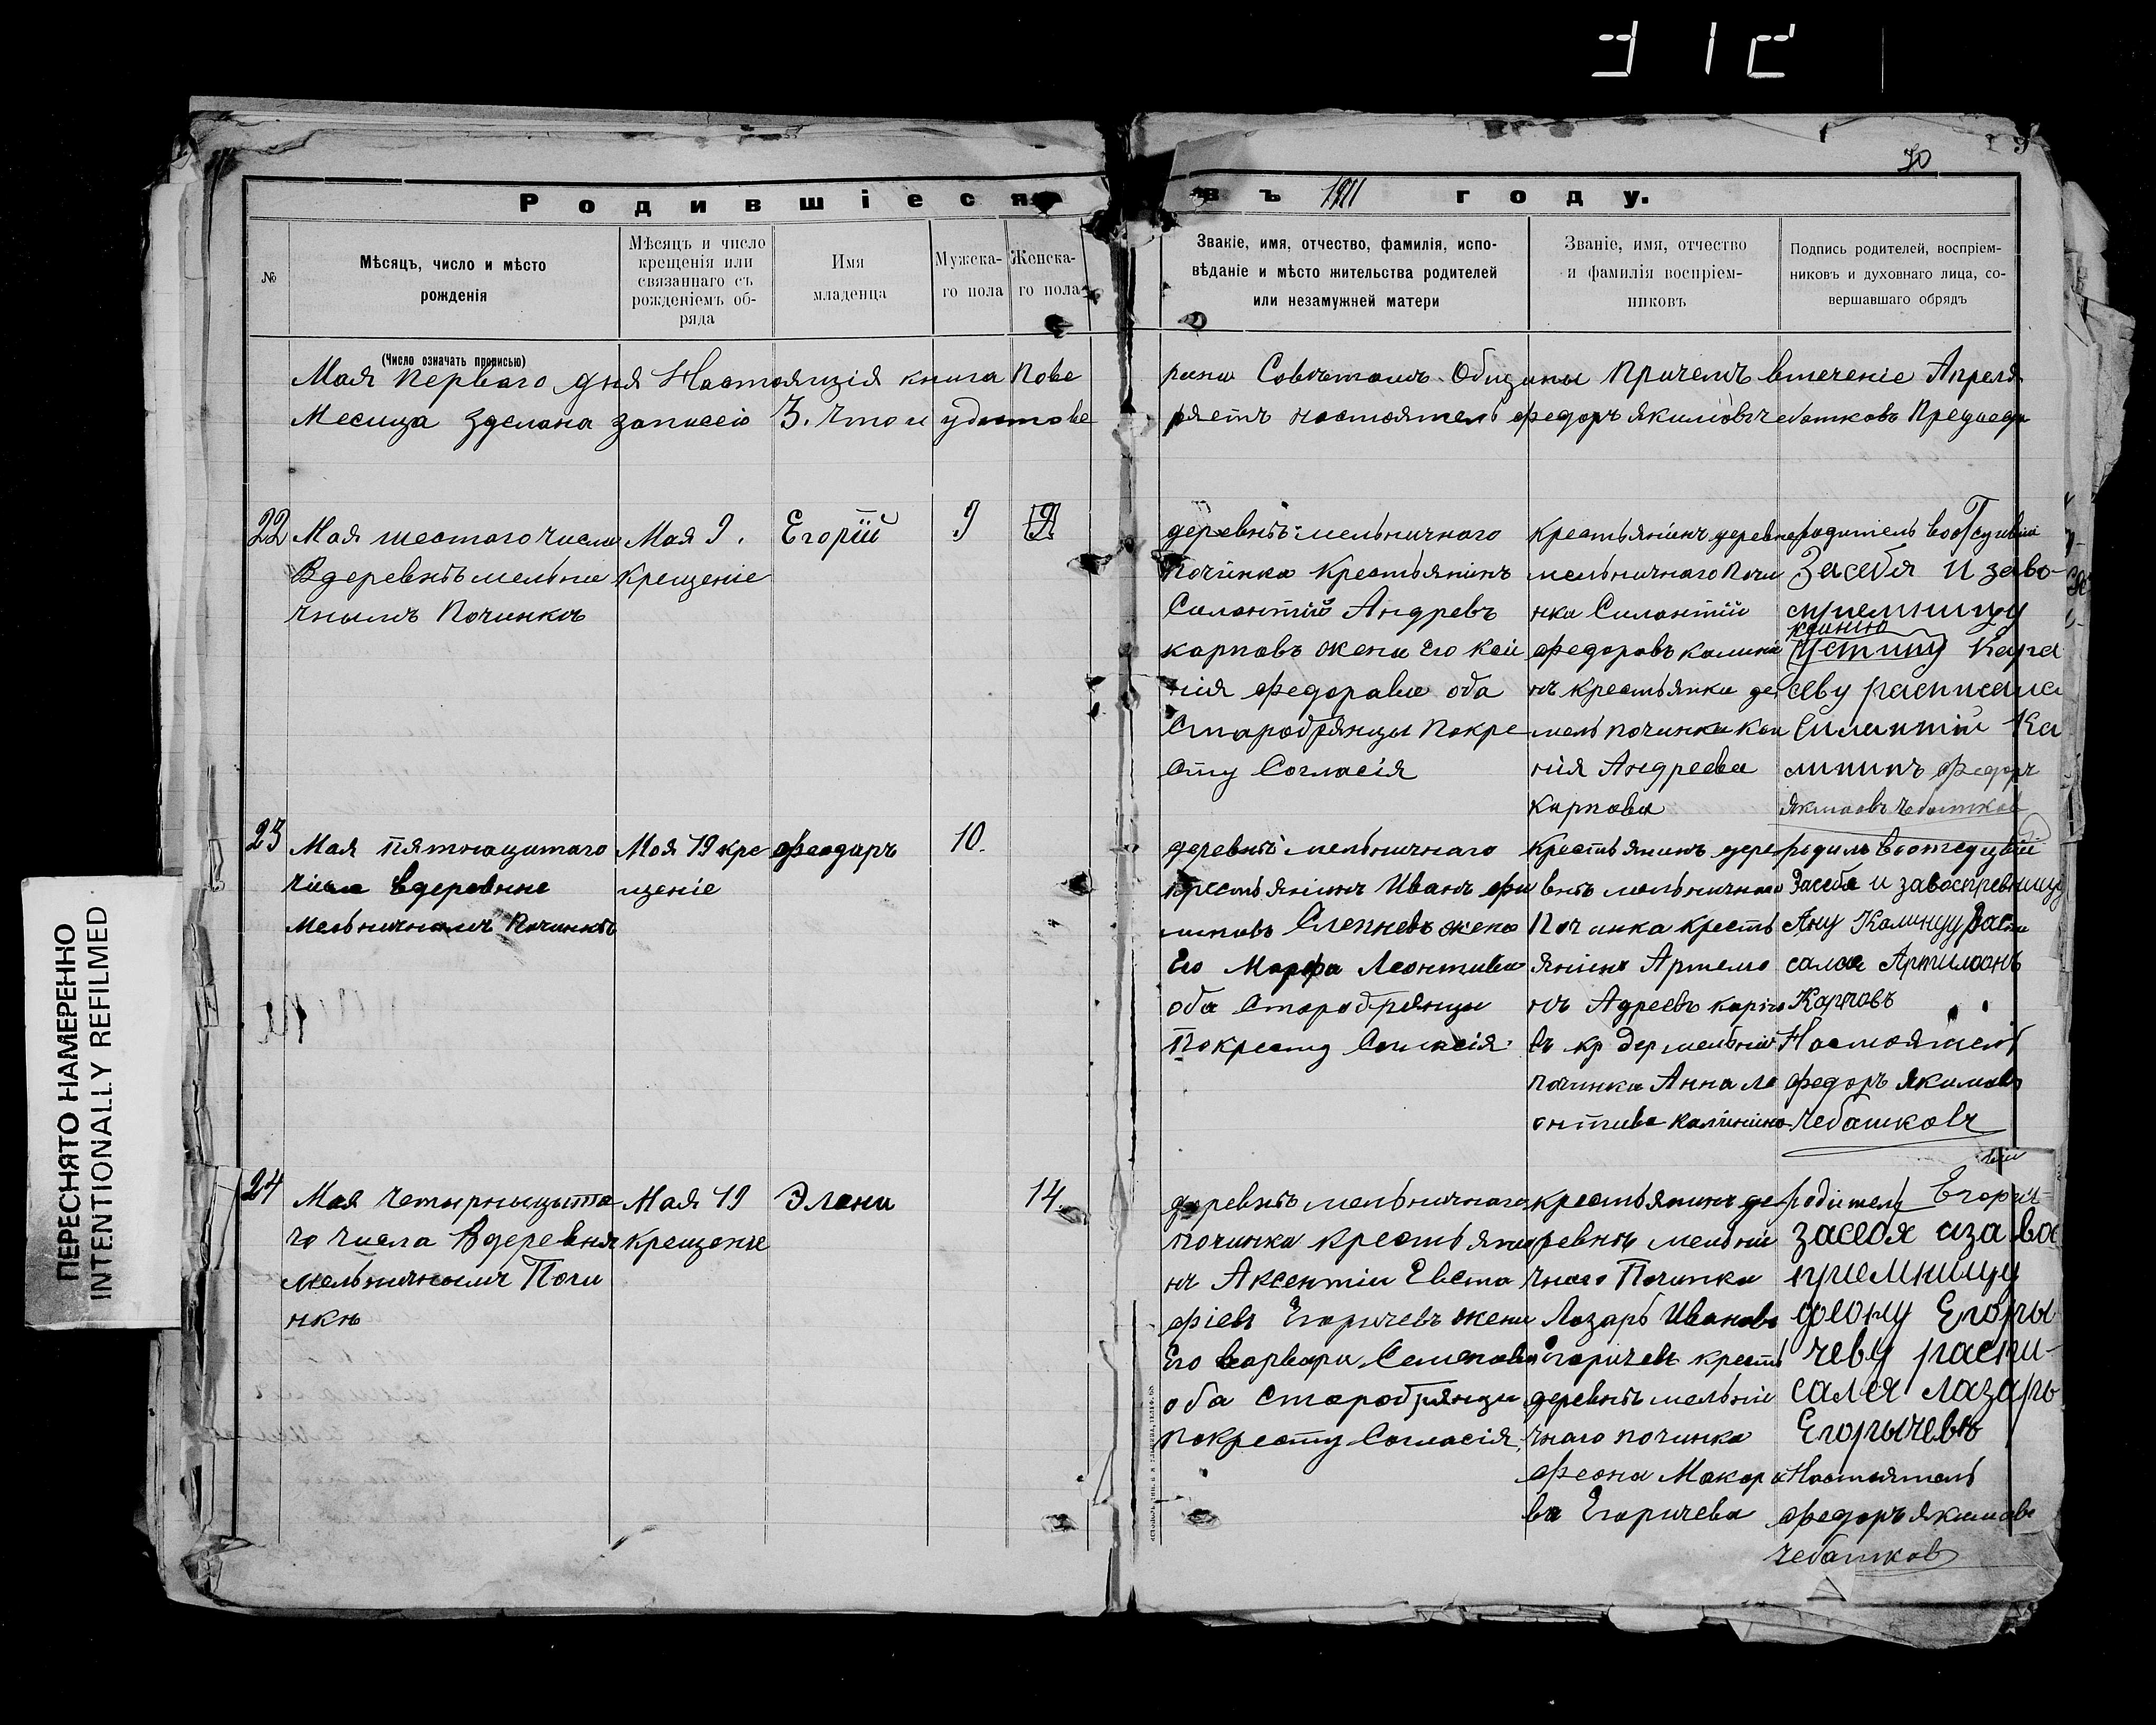 312
70
Родившіеся въ 1911 году.
№
Мѣсяцъ, число и мѣсто
рожденія
Мѣсяцъ и число
крещенія или
связаннаго съ
рожденіемъ об-
ряда
Имя
младенца
Мужска-
го пола
Женска-
го пола
Званіе, имя, отчество, фамилія, испо-
вѣданіе и мѣсто жительства родителей
или незамужней матери
Званіе, имя, отчество
и фамилія воспріем-
никовъ
Подпись родителей, воспріем-
никовъ и духовнаго лица, со-
вершавшаго обрядъ
(Число означать прописью)
Мая перваго дня Настоящія книга Пове рина Советомъ Общины Причемъ втеченіе Апреля
Месица Зделана записею 3. что и удостове ряетъ настоятель федоръ якимовъ чебатковъ Председа
22
Мая шестого числа
Вдеревнѣ мельни
чнымъ Починкъ
Мая 9.
Крещеніе
Егорій
9
деревнѣ мельничного
Починка Крестьянинъ
Силантій Андревъ
карповъ жена Его Ксе
нія федорава оба
Старобрянцы Покре
сту Согласія
Крестьянинъ деревне
мельничного Почи
нка Силантій
федоровъ калини
нъ крестьянка де
мель починка Ксе
нія Андреева
карпова
родитель
Засебя и заво-
сприемницу
ксинию
устину Кара
севу расписался
Силантий Ка
лининъ федоръ
якимовъ чебатков
23
Мая пятнацатаго
числа вдеревнне
Мельничномъ Починкѣ
Мая 19 кре
щеніе
феодаръ
10.
деревнѣ мельничнаго
крестьянинъ Иванъ фи
липовъ Слепневъ жена
Его Марфа Леонтива
оба Старобрянцы
Покресту Согласія.
Крестьянинъ дере
внѣ мельничнаго
Починка кресть
янинъ Артемо
нъ Адреевъ карпо
въ кр дер мельнич
починка Анна ле
онтива калинина
Засебя и завоспреемницу
Ану Калинуу Распи
салса Артимонъ
Карповъ
Настоятель
федоръ якимовъ
Чебатковъ
24
Мая четырныцыта
го числа Вдеревня
Мельничномъ Почи
нкѣ
Мая 19
Крещеніе
Элена
14.
деревнѣ мельничнаго
починка крестьяни
нъ Аксентіи Евста
фіевъ Егоричевъ жена
Его варвара Семенова
оба Старобрянцы
покресту Согласія.
крестьянинъ де
ревнѣ мельни
чнаго Починка
Лазарь Ивановъ
Егоричевъ кресть
деревнѣ мельни
чнаго починка
феона Макаро
ва Егоричева
родитель Егорич
засебя иза вос
приемницу
феону Егоры-
чеву распи-
салея лазарь
Егорычевъ
Настоятель
федоръ якимовъ
чебатков
ПЕРЕСНЯТО НАМЕРЕННО
INTENTIONALLY REFILMED